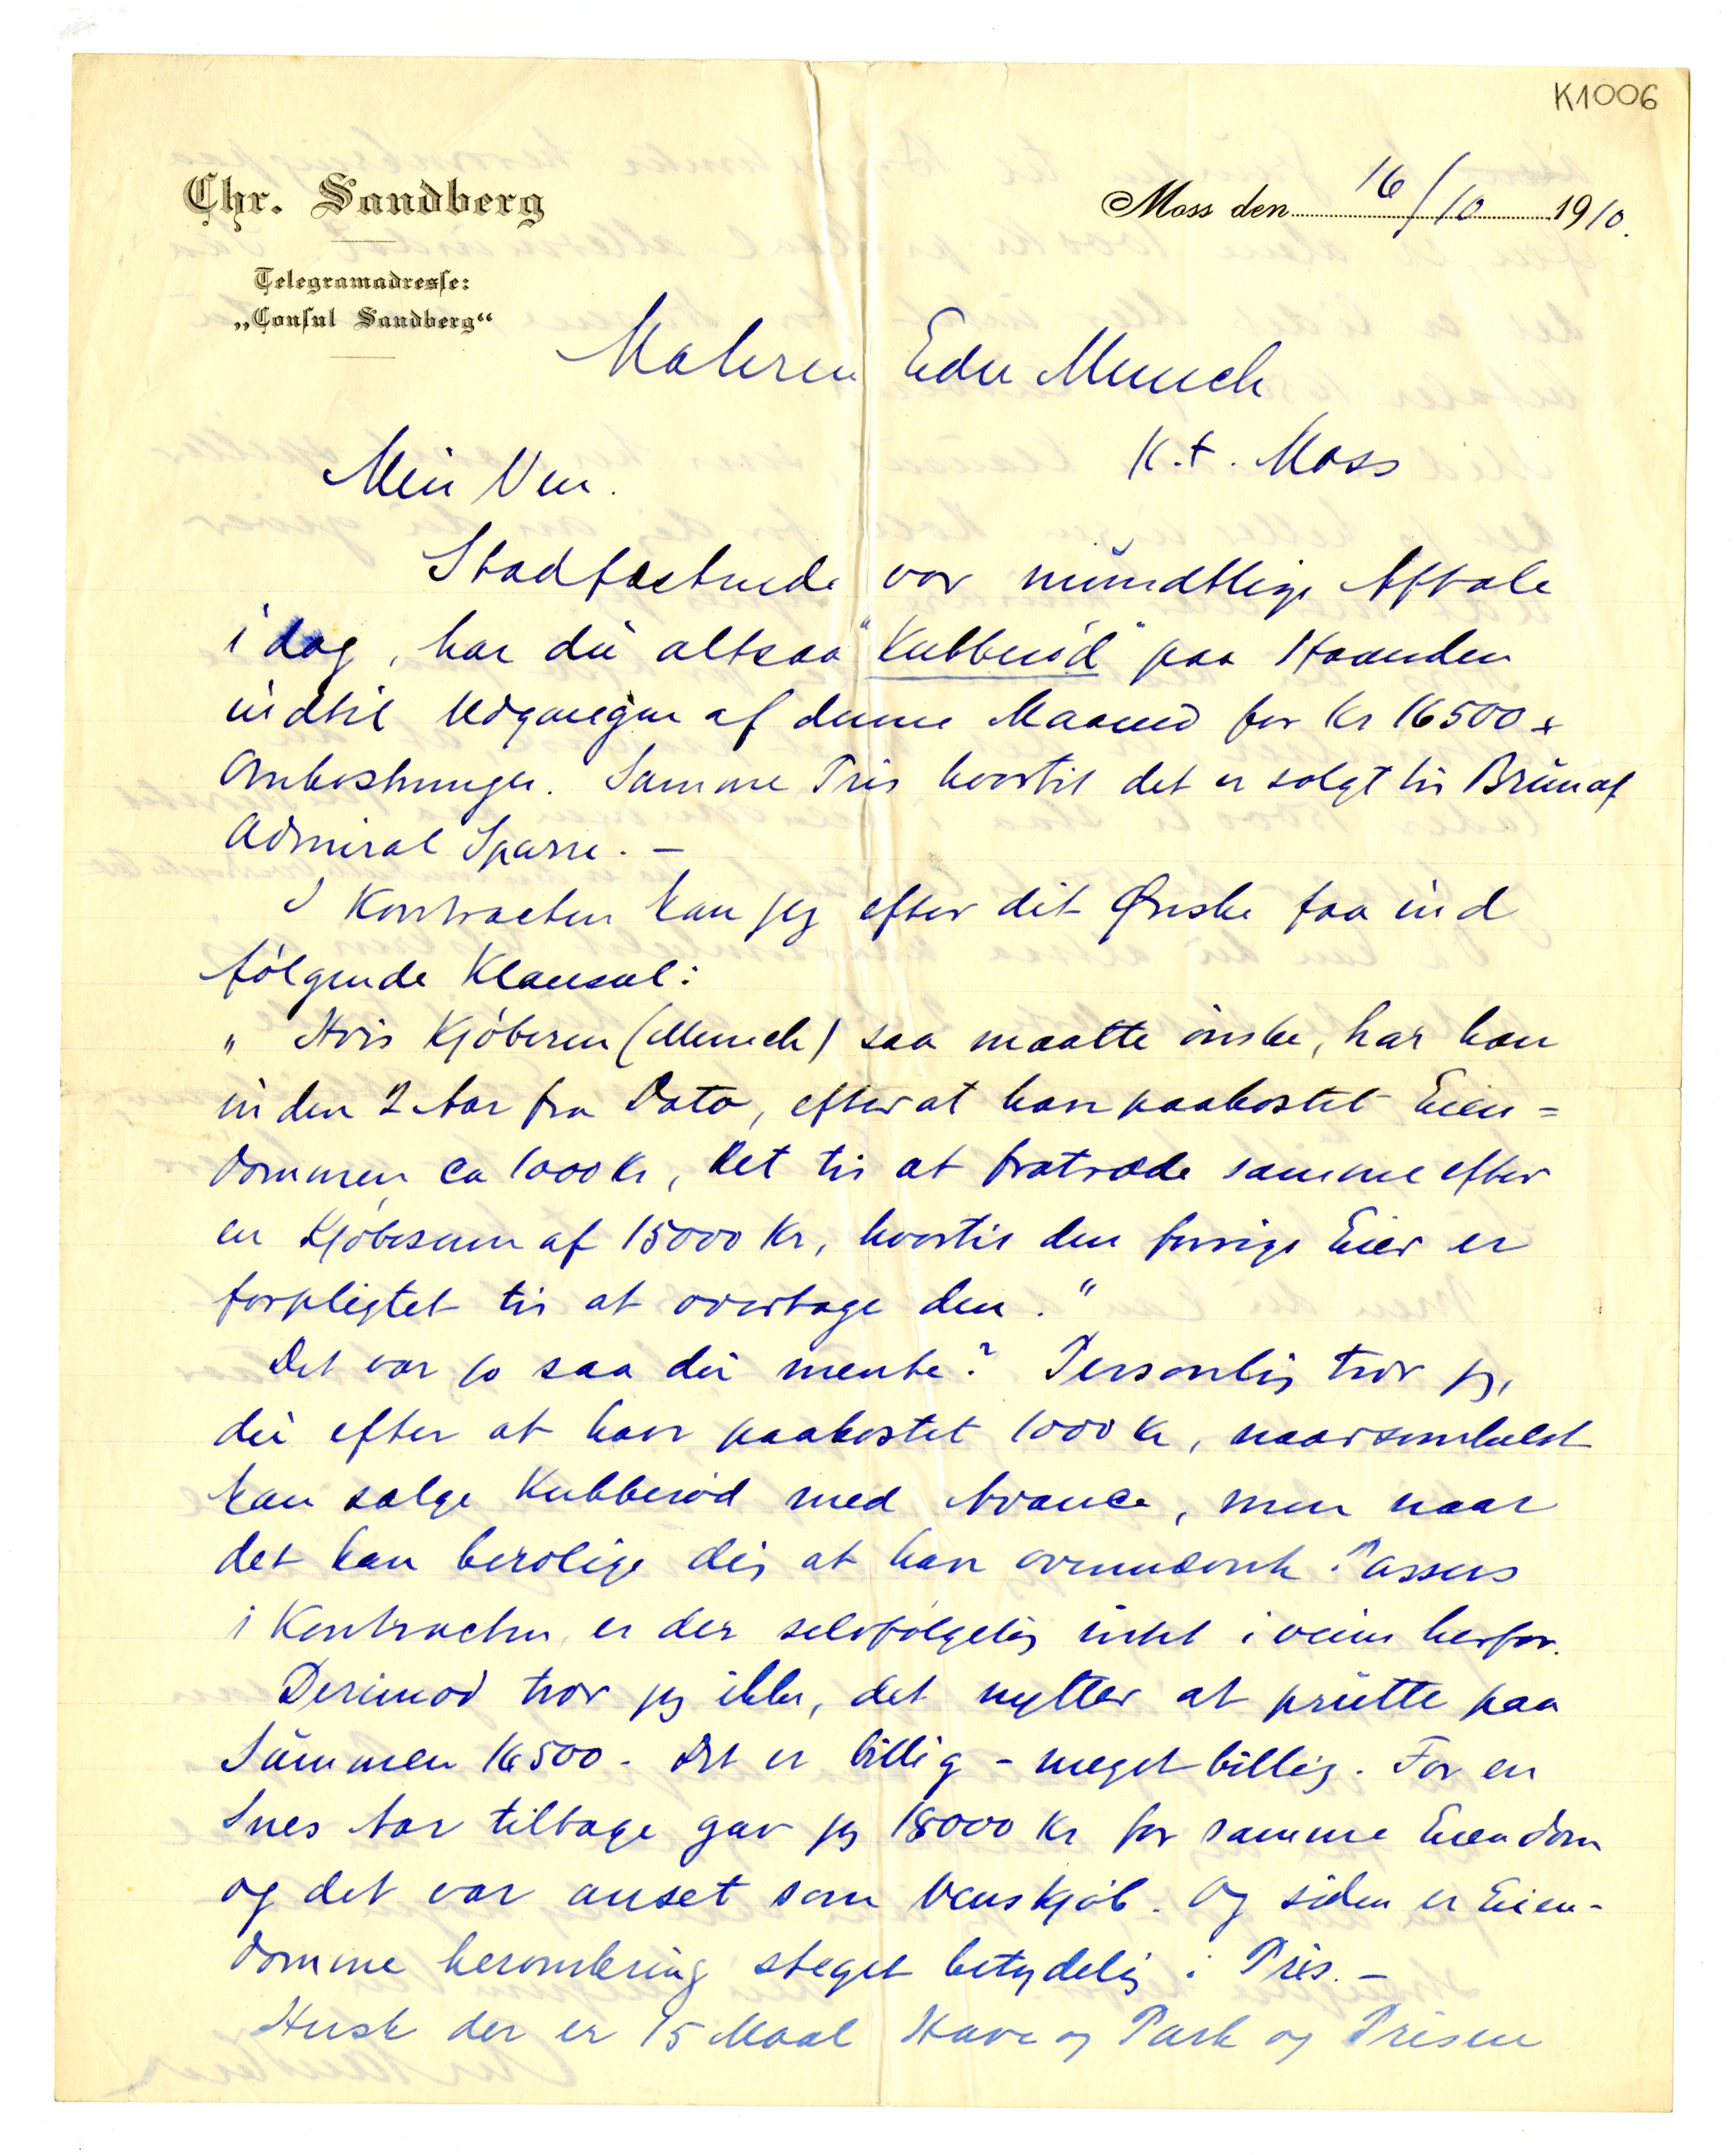 K1006
Chr. Sandberg
Telegramadresse:
„Consul Sandberg“
Moss den 16/10 1910.
Maleren Edv Munch
K.t. Moss
Min Ven.
Stadfæstende vor mündtlige Aftale
i dag, har dü altsaa "Kubberød" paa Haanden
indtil Udgangen af denne Maaned for Kr 16500 +
Omkostninger. Samme Pris hvortil det er solgt til
Admiral Sparre. —
I Kontracten kan jeg efter dit Ønske faa ind
følgende Klausul:
„ Hvis Kjøberen (Munch) saa maatte ønske, har han
inden 2 Aar fra Dato, efter at have paakostet Eien=
dommen ca 1000 Kr, Ret til at fratræde samme efter
en Kjøbesum af 15000 Kr, hvortil den forrige Eier er
forpligtet til at overtage den."
Det var jo saa dü mente? Personlig tror jeg,
dü efter at have paakostet 1000 Kr, naarsomhelst
kan sælge Kubberød med Avance, men naar
det kan berolige dig at have ovennævnte Passus
i Kontracten, er der selvfølgelig intet i veien herfor.
Derimod tror jeg ikke, det nytter at prütte paa
Sümmen 16500 - Det er billig - meget billig. For en
Snes Aar tilbage gav jeg 18000 Kr for samme Eiendom
og det var anset som Venskjøb. Og siden er Eien-
domme heromkring steget betydelig i Pris. —
Husk der er 15 Maal Have og Park og Prisen